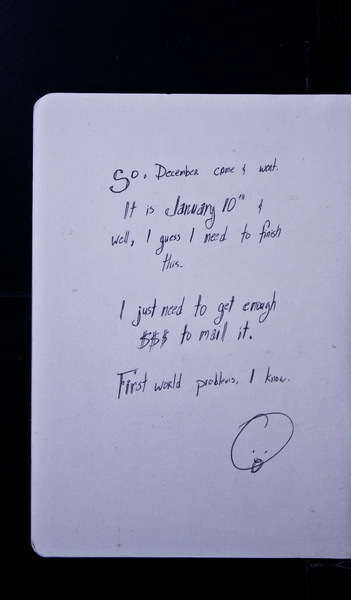 So, December came & went.
It is January 10th &
well, I guess I need to finish
this.
I just need to get enough
$$$ to mail it.
First world problems, I know.